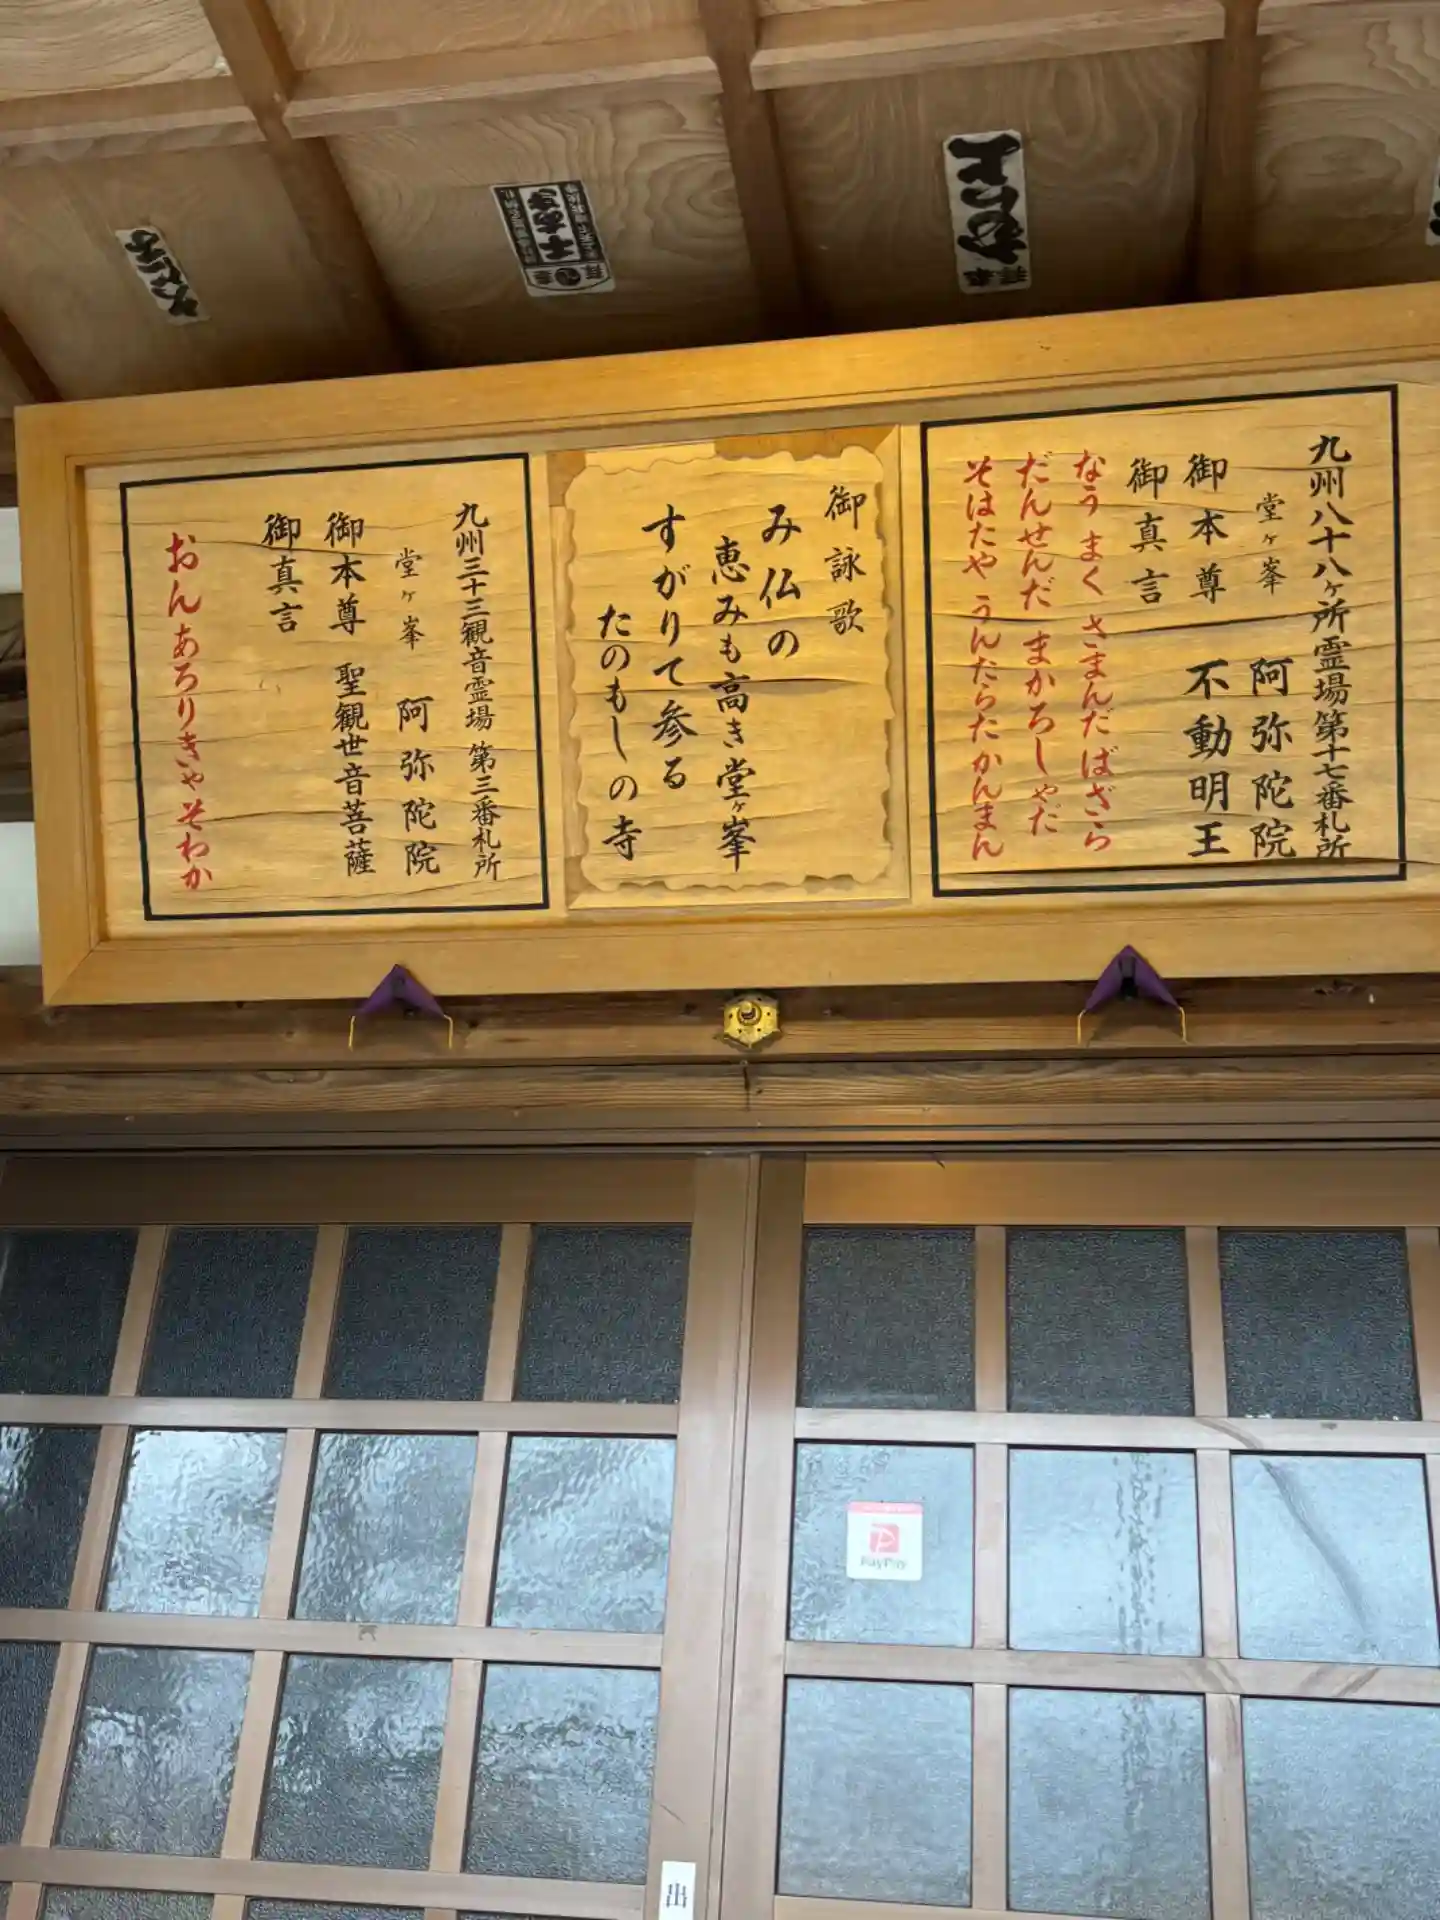 九州八十八ヶ所霊場第十七番札所
堂ヶ峯 阿弥陀院
御本尊 不動明王
御真言
なうまく さまんだ ばざら
だんせんだ まかろしゃだ
そはたや うんたらた かんまん
御詠歌
み仏の
恵みも高き堂ヶ峯
すがりて参る
たのもしの寺
九州三十三観音霊場 第三番札所
堂ヶ峯 阿弥陀院
御本尊 聖観世音菩薩
御真言
おん あろりきゃ そわか
PayPay
出